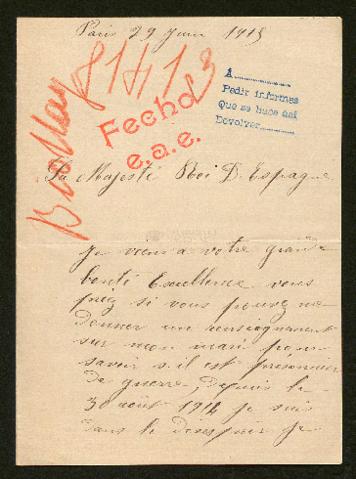 Paris 29 Juin 1915
81413
Fecho
e.a.e.
A
Pedir informes
Que se hace así
Devolver
Sa Majesté Roi D. Espagne
Je viens a votre grande
bonté Excellence vous
priez si vous pouvez me
donner un renseignement
sur mon mari pour
savoir s'il est prisonnier
de guerre, depuis le
30 août 1914 je suis
dans le désespoir je